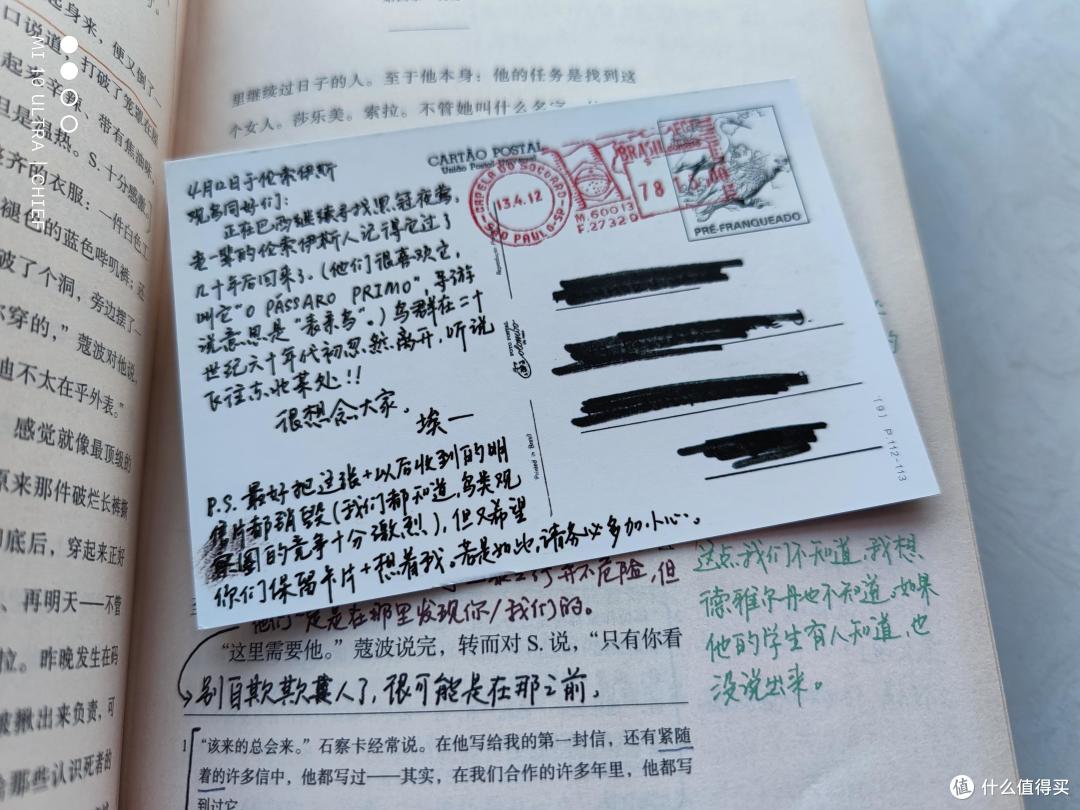 起身来，便又倒了一
口说道，打破了笼罩在
起来辛辣、带有焦油味，
但是温热。S. 十分感激。）
整齐的衣服：一件白色工
褪色的蓝色哔叽裤；还
破了个洞，旁边摆了一
尔穿的，”蔻波对他说，
也不太在乎外表。”
感觉就像最顶级的
原来那件破烂长裤撕
彻底后，穿起来正好
、再明天——不管
拉。昨晚发生在码
被揪出来负责，可
给那些认识死者的
MI 10 ULTRA | CHIEF
里继续过日子的人。至于他本身：他的任务是找到这
个女人。莎乐美。索拉。不管她叫什么名字
4月12日于伦索伊斯
观鸟同好们：
正在巴西继续寻找黑冠夜鹭，
老一辈的伦索伊斯人记得它过了
几十年后回来了。（他们很喜欢它，
叫它“O PÁSSARO PRIMO”，导游
说意思是“表亲鸟”。）鸟群在二十
世纪六十年代初忽然离开，听说
飞往东北某处！！
很想念大家。
埃一
P.S. 最好把这张+以后收到的明
信片都销毁（我们都知道，鸟类观
察圈的竞争十分激烈），但又希望
你们保留卡片+想着我。若是如此，请务必多加小心。
CARTÃO POSTAL
União Postal Universal
CAPELA DO SOCORRO
13.4.12
SÃO PAULO-SP
M.60013
F.27320
BRASIL
78
PRÉ-FRANQUEADO
Printed in Brazil
191 P.112-113
并不危险，但
他们一定是在那里发现你/我们的。
“这里需要他。”蔻波说完，转而对 S. 说，“只有你看
别自欺欺人了，很可能是在那之前。
这点我们不知道。我想
德雅尔丹也不知道。如果
他的学生有人知道，也
没说出来。
1 “该来的总会来。”石察卡经常说。在他写给我的第一封信，还有紧随
着的许多信中，他都写过——其实，在我们合作的许多年里，他都写
到过它
值 什么值得买